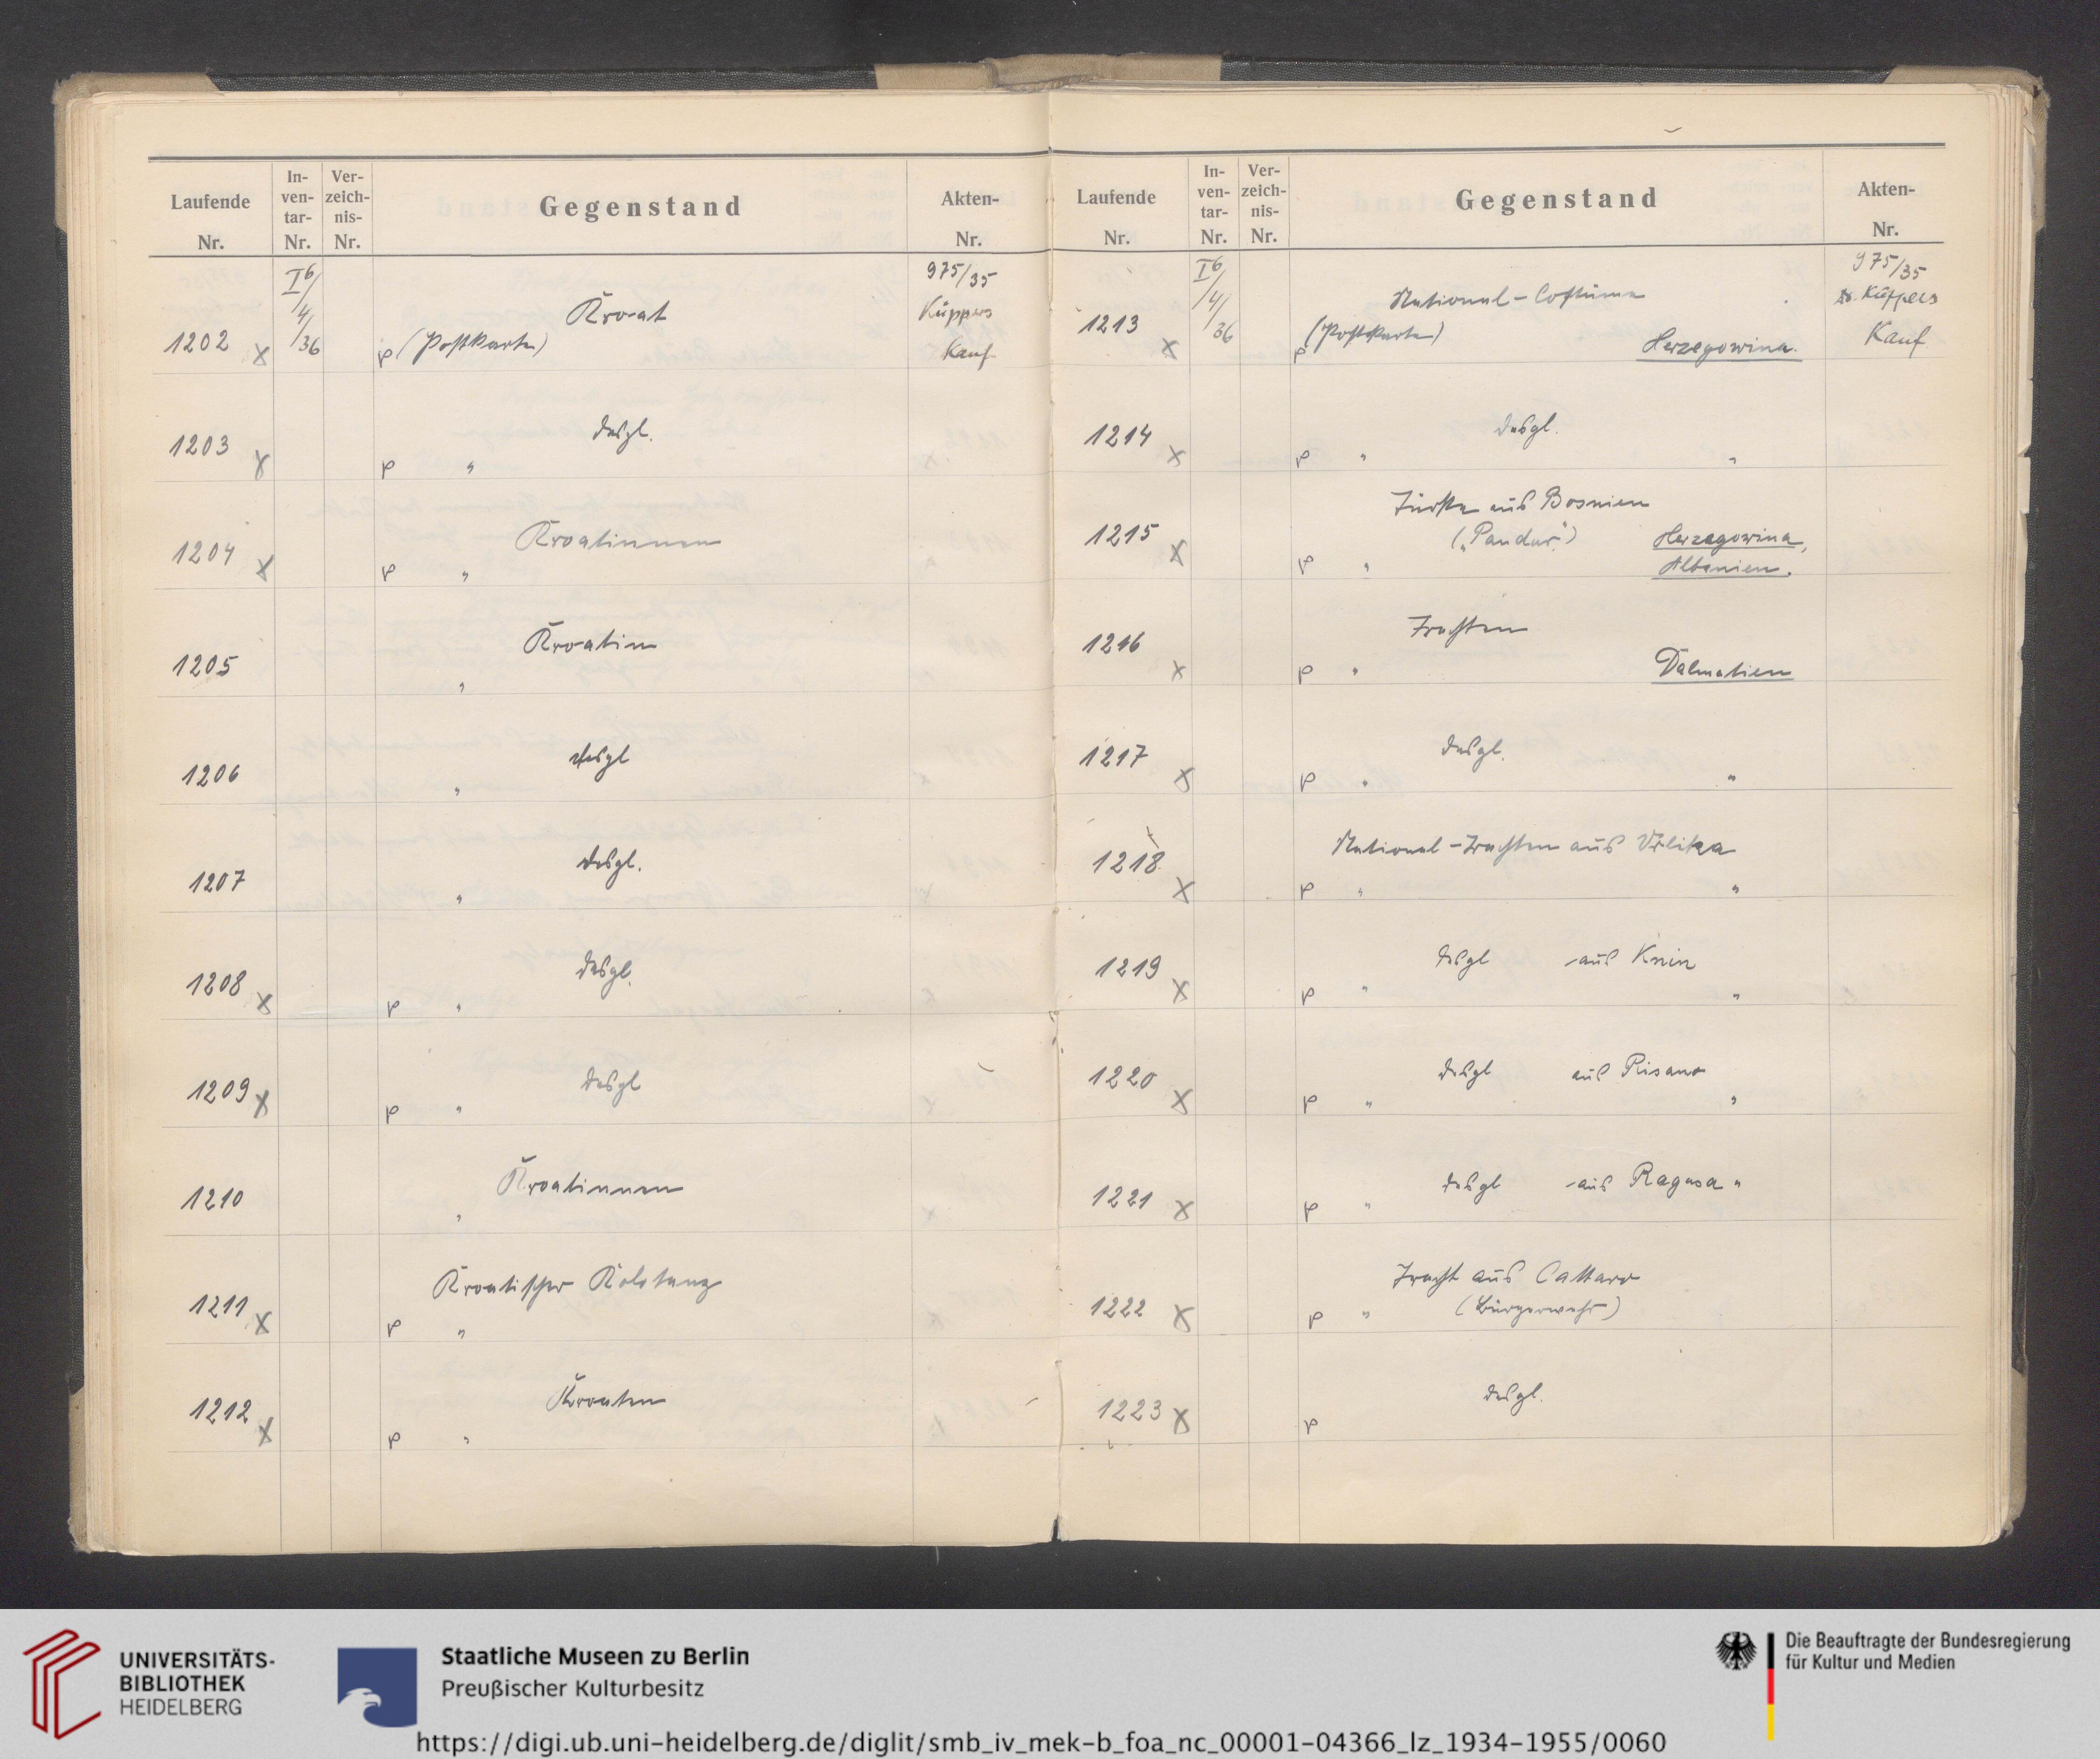 Laufende Nr. In-ven-tar-Nr. Ver-zeich-nis-Nr. Gegenstand Akten-Nr.
I 6/4/36 975/35
1202 x Kroat Küppers
p (Postkarte) Kauf
1203 x desgl.
p "
1204 x Kroatinnen
p "
1205 Kroatin
"
1206 desgl
"
1207 desgl.
"
1208 x desgl.
p "
1209 x desgl
p "
1210 Kroatinnen
"
1211 x Kroatischer Kolotanz
p "
1212 x Kroaten
p "
Laufende Nr. In-ven-tar-Nr. Ver-zeich-nis-Nr. Gegenstand Akten-Nr.
I 6/4/36 975/35
National-Costüme Dr. Küppers
1213 x p (Postkarte) Herzegowina. Kauf
1214 x desgl.
p " "
Türke aus Bosnien
1215 x („Pandur") Herzegowina,
p " Albanien.
1216 Trachten
x p " Dalmatien
1217 x desgl.
p " "
1218 x National-Trachten aus Vrlika
p " "
1219 x desgl aus Knin
p " "
1220 x desgl aus Risano
p " "
1221 x desgl aus Ragusa "
p "
Tracht aus Cattaro
1222 x p " (Bürgerwehr)
1223 x desgl.
p
UNIVERSITÄTS-
BIBLIOTHEK
HEIDELBERG
Staatliche Museen zu Berlin
Preußischer Kulturbesitz
Die Beauftragte der Bundesregierung
für Kultur und Medien
https://digi.ub.uni-heidelberg.de/diglit/smb_iv_mek-b_foa_nc_00001-04366_lz_1934-1955/0060